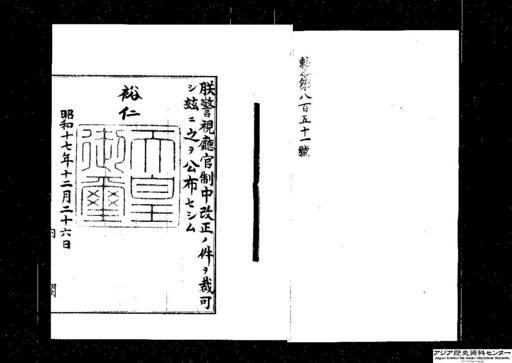 勅令第八百五十一號
朕警視廳官制中改正ノ件ヲ裁可
シ茲ニ之ヲ公布セシム
裕仁
天皇
御璽
昭和十七年十二月二十六日
内閣
アジア歴史資料センター
Japan Center for Asian Historical Records